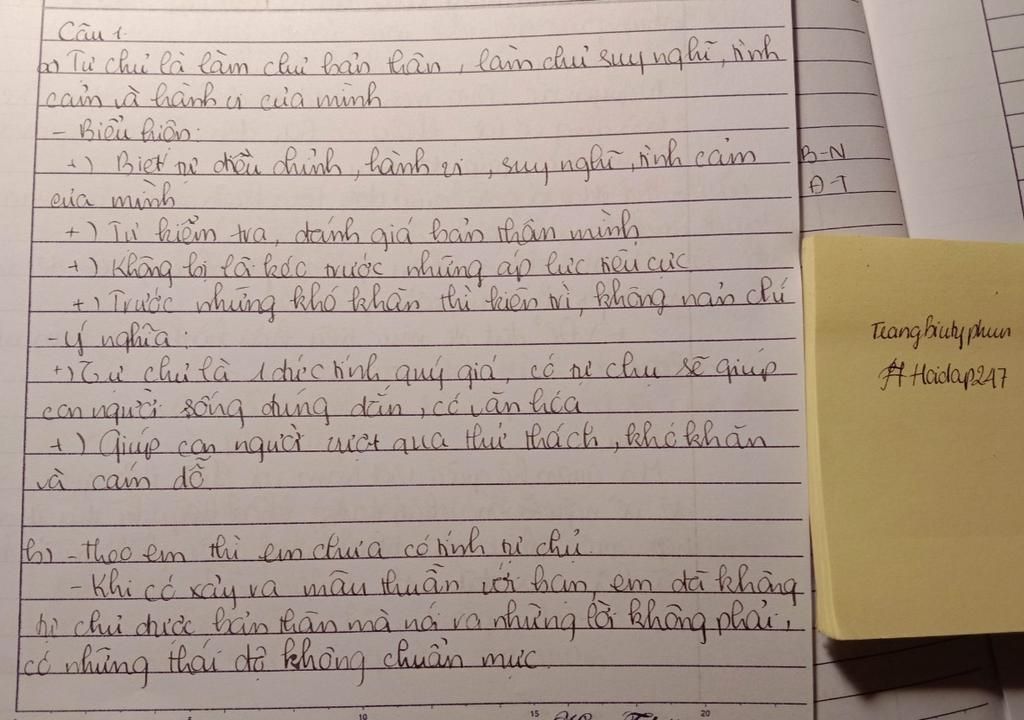 Câu 1.
a) Tự chủ là làm chủ bản thân, làm chủ suy nghĩ, tình
cảm và hành vi của mình
- Biểu hiện:
+) Biết tự điều chỉnh, hành vi, suy nghĩ, tình cảm
của mình
+) Tự kiểm tra, đánh giá bản thân mình
+) Không bị lôi kéo trước những áp lực tiêu cực
+) Trước những khó khăn thì kiên trì, không nản chí
- Ý nghĩa:
+) Tự chủ là 1 đức tính quý giá, có tự chủ sẽ giúp
con người sống đúng đắn, có văn hóa
+) Giúp con người vượt qua thử thách, khó khăn
và cám dỗ
b) - Theo em thì em chưa có tính tự chủ.
- Khi có xảy ra mâu thuẫn với bạn, em đã không
tự chủ được bản thân mà nói ra những lời không phải,
có những thái độ không chuẩn mực.
B-N
Đ-T
Trangbiutyphun
# Hoidap247
10
15
20